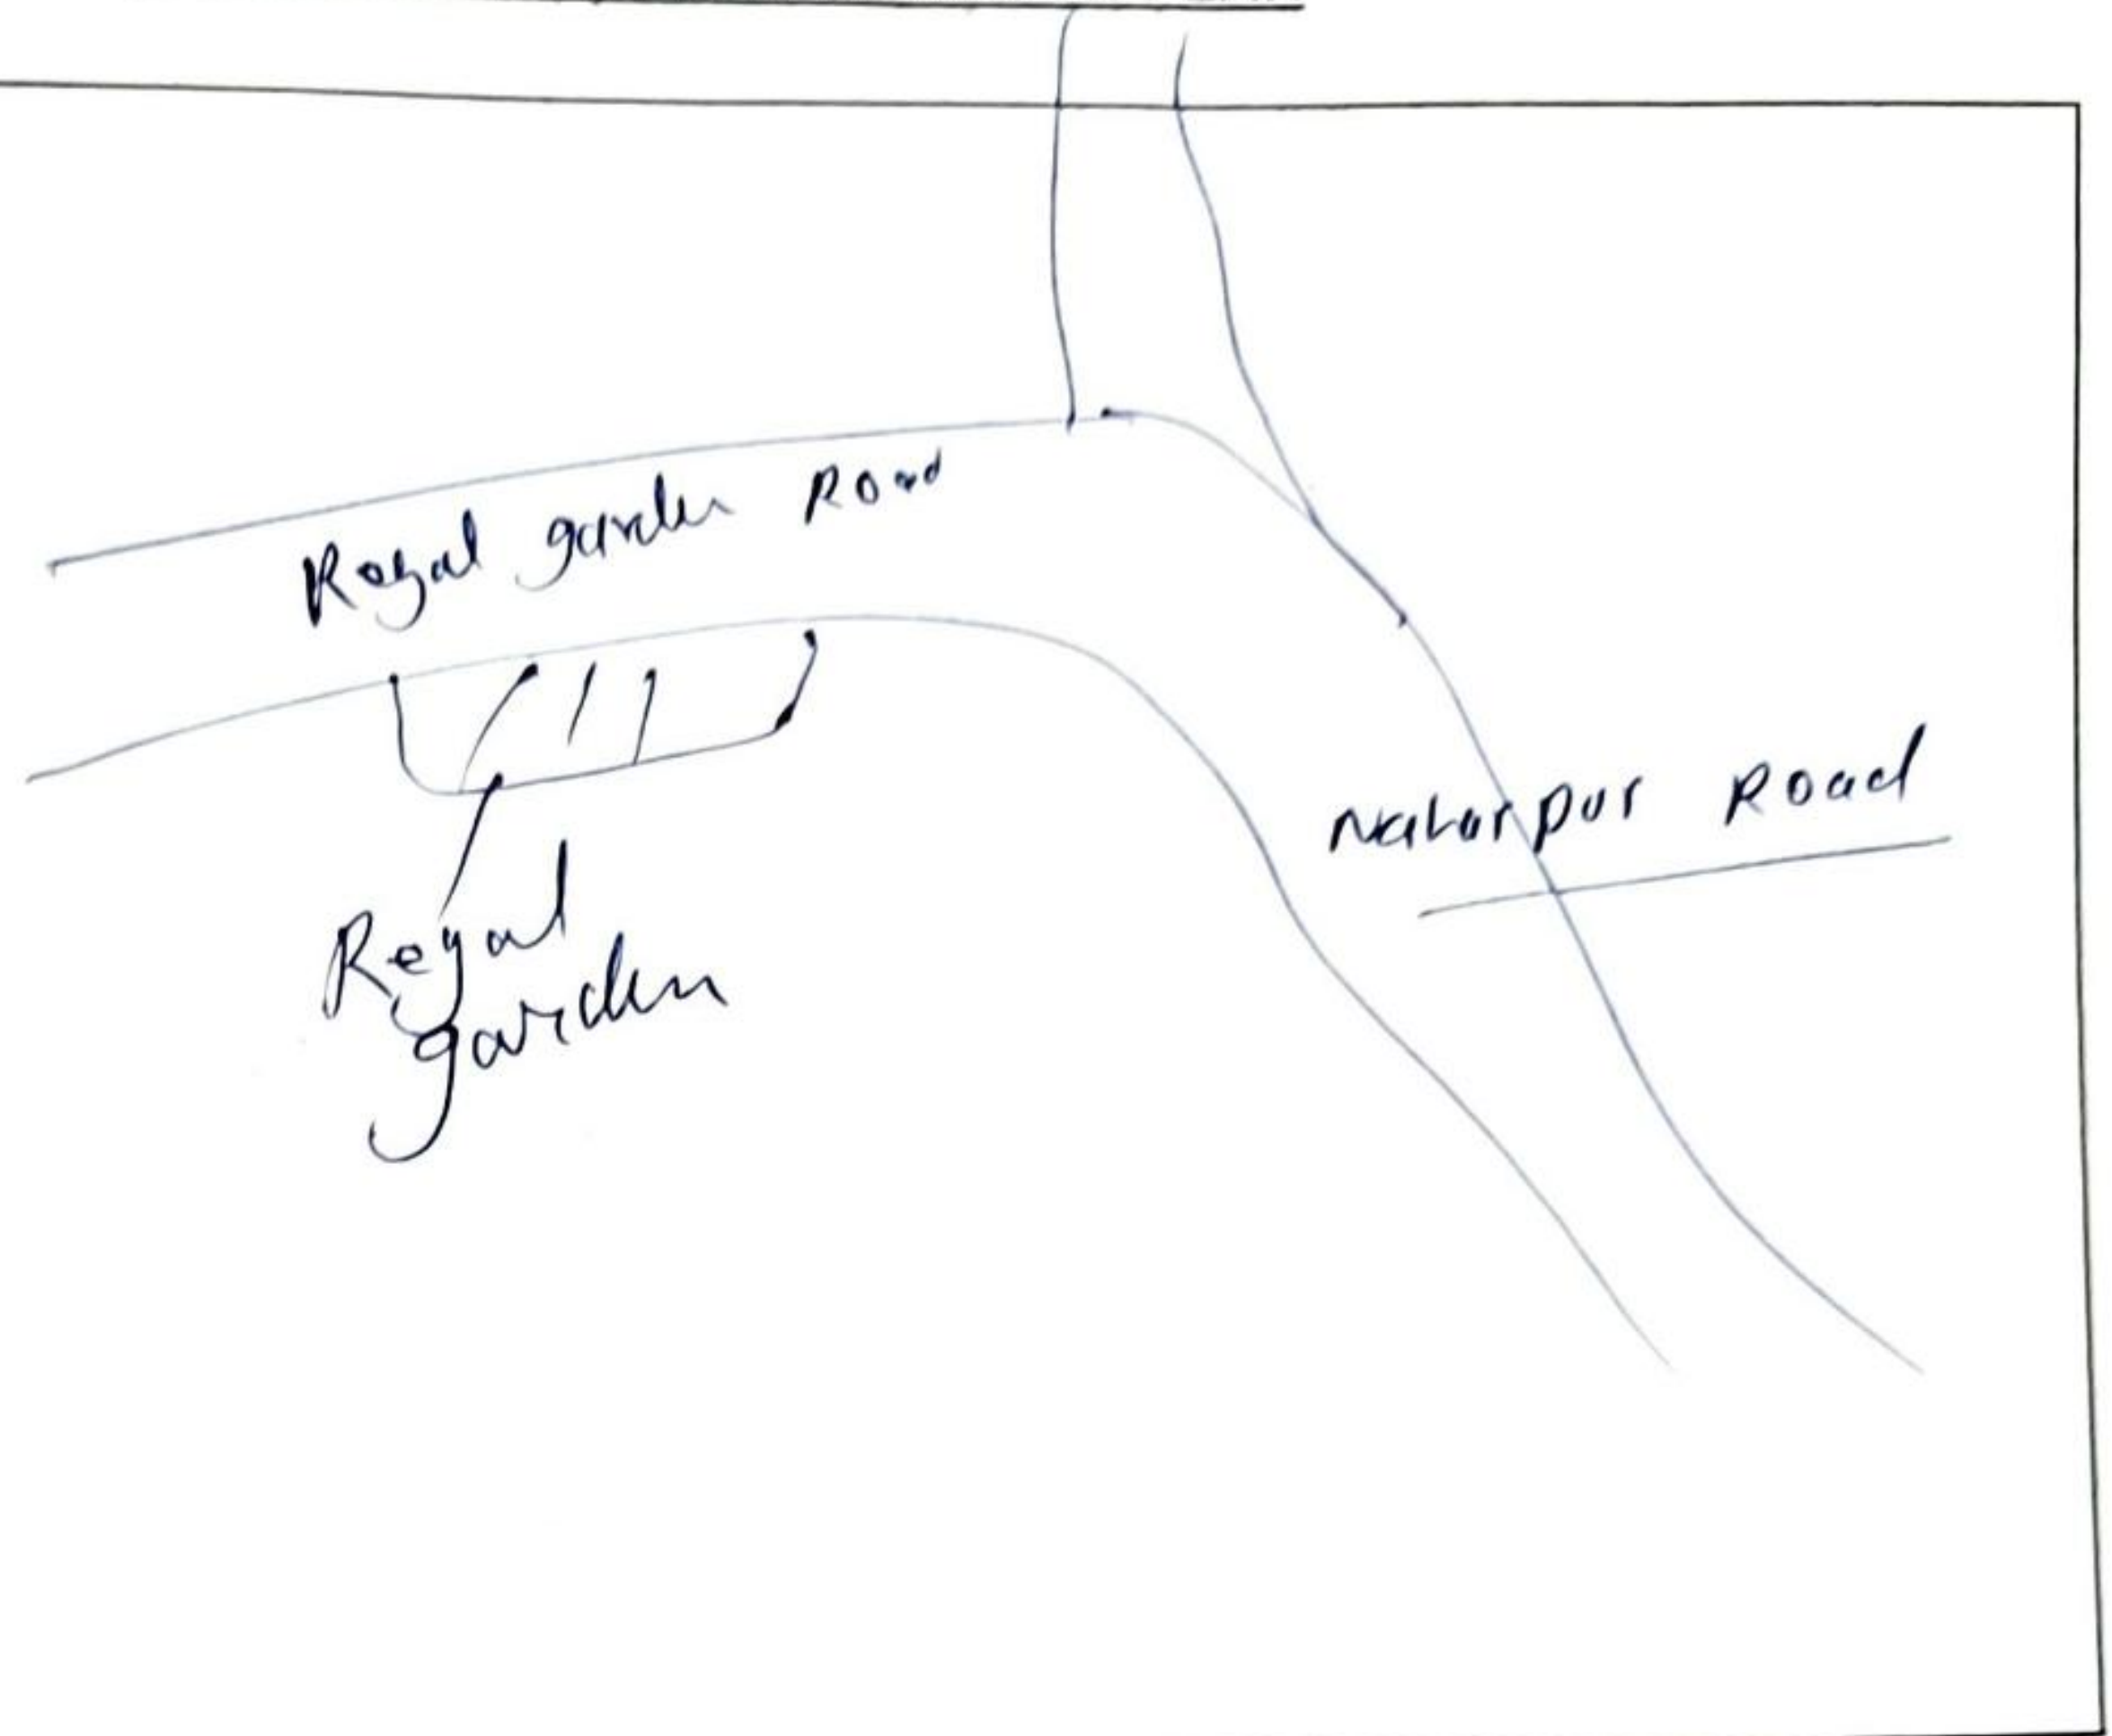 Royal garden Road
Natorpur Road
Royal
garden